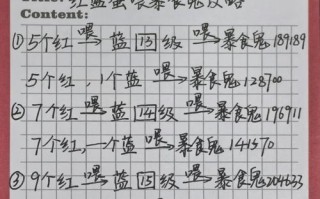 Content:
①5个红 喂→ 蓝 13 级 喂→ 暴食鬼 189189
5个红,1个蓝 喂→ 暴食鬼 128700
②7个红 喂→ 蓝 14 级 喂→ 暴食鬼 196911
7个红,一个蓝 喂→ 暴食鬼 141570
③9个红 喂→ 蓝 15 级 喂→ 暴食鬼 204633